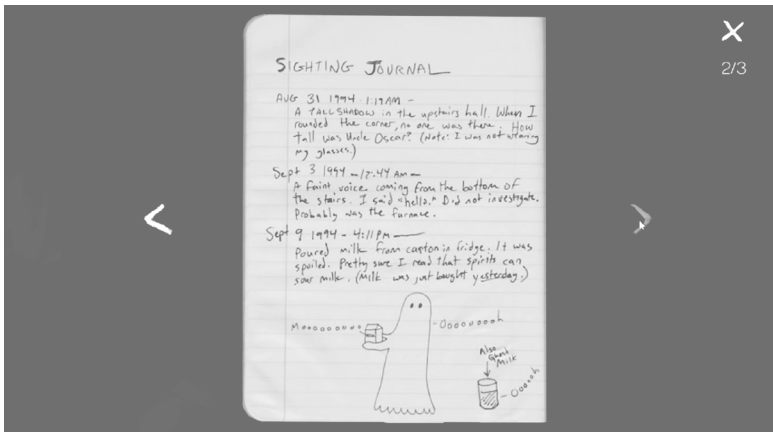 2/3
SIGHTING JOURNAL
AUG 31 1994 - 1:19 AM -
A TALL SHADOW in the upstairs hall. When I
rounded the corner, no one was there. How
tall was Uncle Oscar? (Note: I was not wearing
my glasses.)
Sept 3 1994 - 12:47 AM -
A faint voice coming from the bottom of
the stairs. I said "hello." Did not investigate.
Probably was the furnace.
Sept 9 1994 - 4:11 PM -
Poured milk from carton in fridge. It was
spoiled. Pretty sure I read that spirits can
sour milk. (Milk was just bought yesterday.)
Mooooooooo
-Oooooooooh
Also
Ghost
Milk
-Oooooh